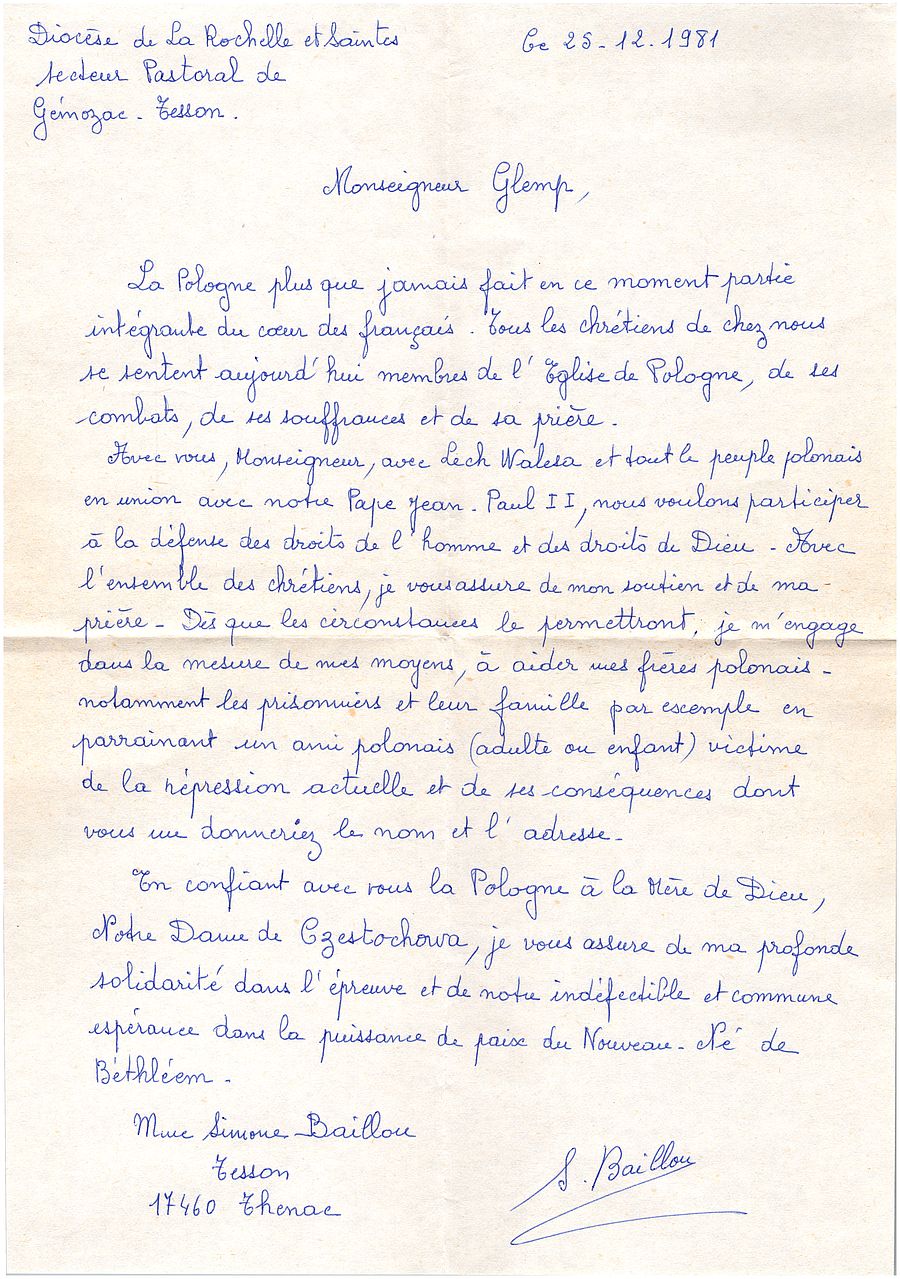 Diocèse de La Rochelle et Saintes
Le 25-12.1981
secteur Pastoral de
Gémozac - Tesson.
Monseigneur Glemp,
La Pologne plus que jamais fait en ce moment partie
intégrante du cœur des français. Tous les chrétiens de chez nous
se sentent aujourd'hui membres de l'Eglise de Pologne, de ses
combats, de ses souffrances et de sa prière.
Avec vous, Monseigneur, avec Lech Walesa et tout le peuple polonais
en union avec notre Pape Jean-Paul II, nous voulons participer
à la défense des droits de l'homme et des droits de Dieu - Avec
l'ensemble des chrétiens, je vous assure de mon soutien et de ma
prière - Dès que les circonstances le permettront, je m'engage
dans la mesure de mes moyens, à aider mes frères polonais -
notamment les prisonniers et leur famille par escemple en
parrainant un ami polonais (adulte ou enfant) victime
de la répression actuelle et de ses conséquences dont
vous me donneriez le nom et l'adresse -
En confiant avec vous la Pologne à la Mère de Dieu,
Notre Dame de Czestochowa, je vous assure de ma profonde
solidarité dans l'épreuve et de notre indéfectible et commune
espérance dans la puissance de paix du Nouveau-Né de
Béthléem -
Mme Simone Baillou
Tesson
17460 Thenac
S. Baillou